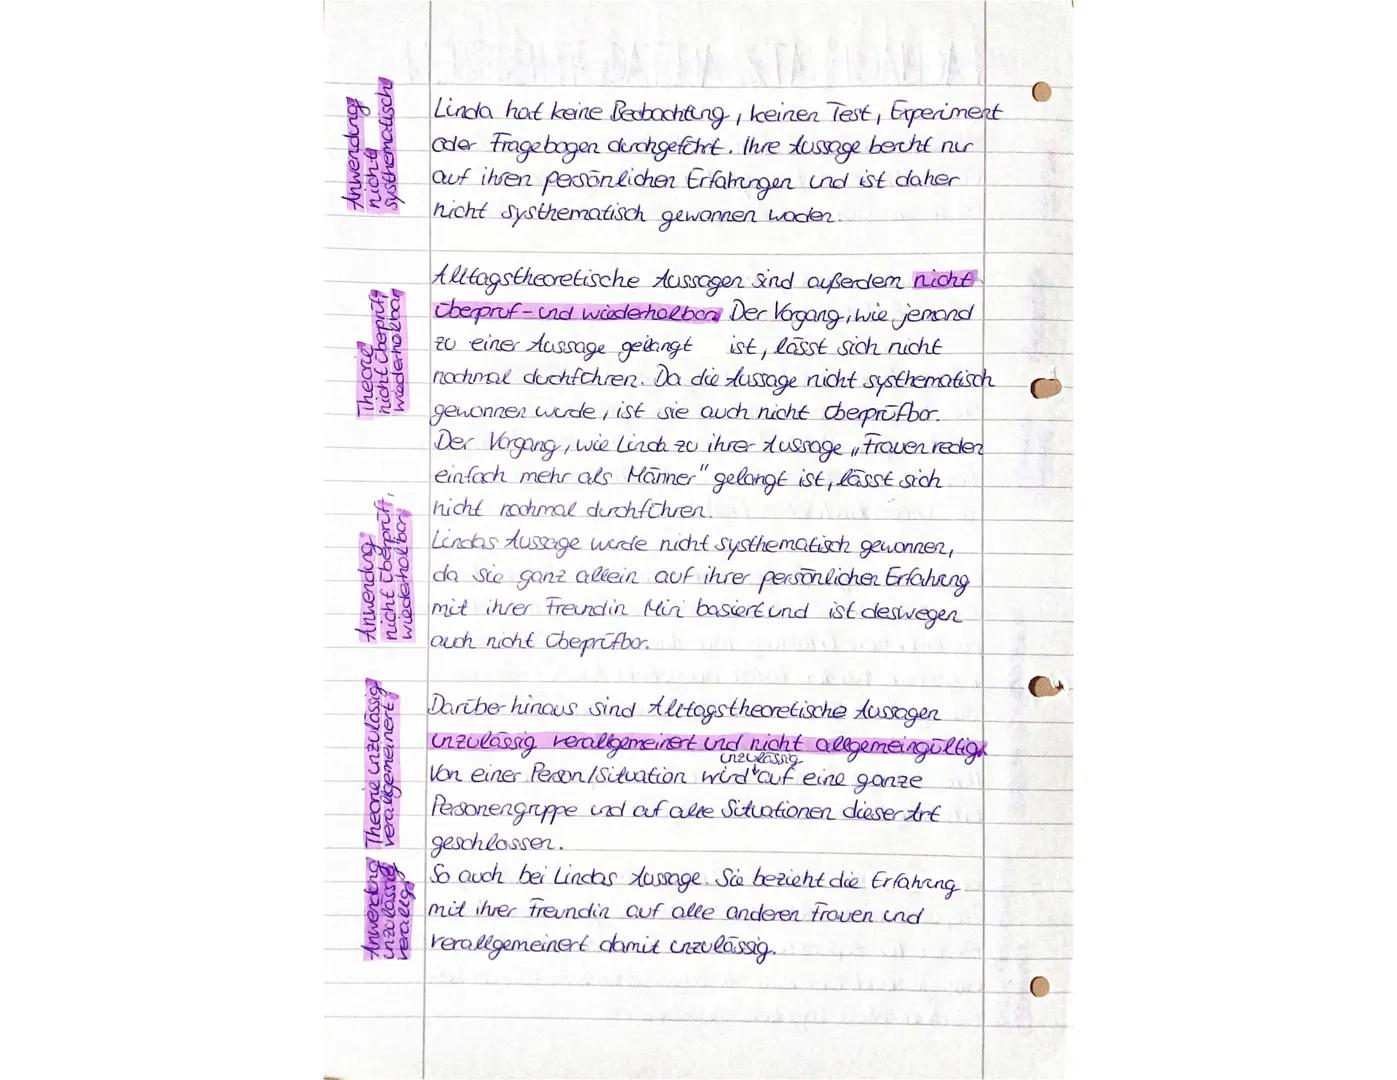 Anwendung
nicht
systhematisch
Linda hat keine Beobachtung, keinen Test, Experiment
oder Fragebogen durchgeführt. Ihre Aussage beruht nur
auf ihren persönlichen Erfahrungen und ist daher
nicht systhematisch gewonnen worden.
Theorie
nicht überprüf,
wiederholbar
Alltagstheoretische Aussagen sind außerdem nicht
überprüf- und wiederholbar. Der Vorgang, wie jemand
zu einer Aussage gelangt ist, lässt sich nicht
nochmal durchführen. Da die Aussage nicht systhematisch
gewonnen wurde, ist sie auch nicht überprüfbar.
Der Vorgang, wie Linda zu ihrer Aussage „Frauen reden
einfach mehr als Männer" gelangt ist, lässt sich
nicht nochmal durchführen.
Anwendung
nicht überprüf,
wiederholbar
Lindas Aussage wurde nicht systhematisch gewonnen,
da sie ganz allein auf ihrer persönlichen Erfahrung
mit ihrer Freundin Miri basiert und ist deswegen
auch nicht überprüfbar.
Theorie unzulässig
verallgemeinert
Darüber hinaus sind Alltagstheoretische Aussagen
unzulässig verallgemeinert und nicht allgemeingültig.
unzulässig
Von einer Person/Situation wird auf eine ganze
Personengruppe und auf alle Situationen dieser Art
geschlossen.
Anwendung
unzulässig
verallg.
So auch bei Lindas Aussage. Sie bezieht die Erfahrung
mit ihrer Freundin auf alle anderen Frauen und
verallgemeinert damit unzulässig.